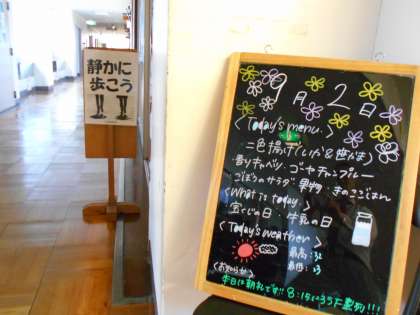 静かに
歩こう
9月2日
<Today's menu>
二色揚げ(いか&笹かま)
香りキャベツ ゴーヤチャンプルー
ごぼうのサラダ 果物 きのこごはん
<What is today>
宝くじの日 牛乳の日
<Today's weather>
最高:32
最低:23
<お知らせ>
本日は朝礼です!! 8:15に35F整列!!!